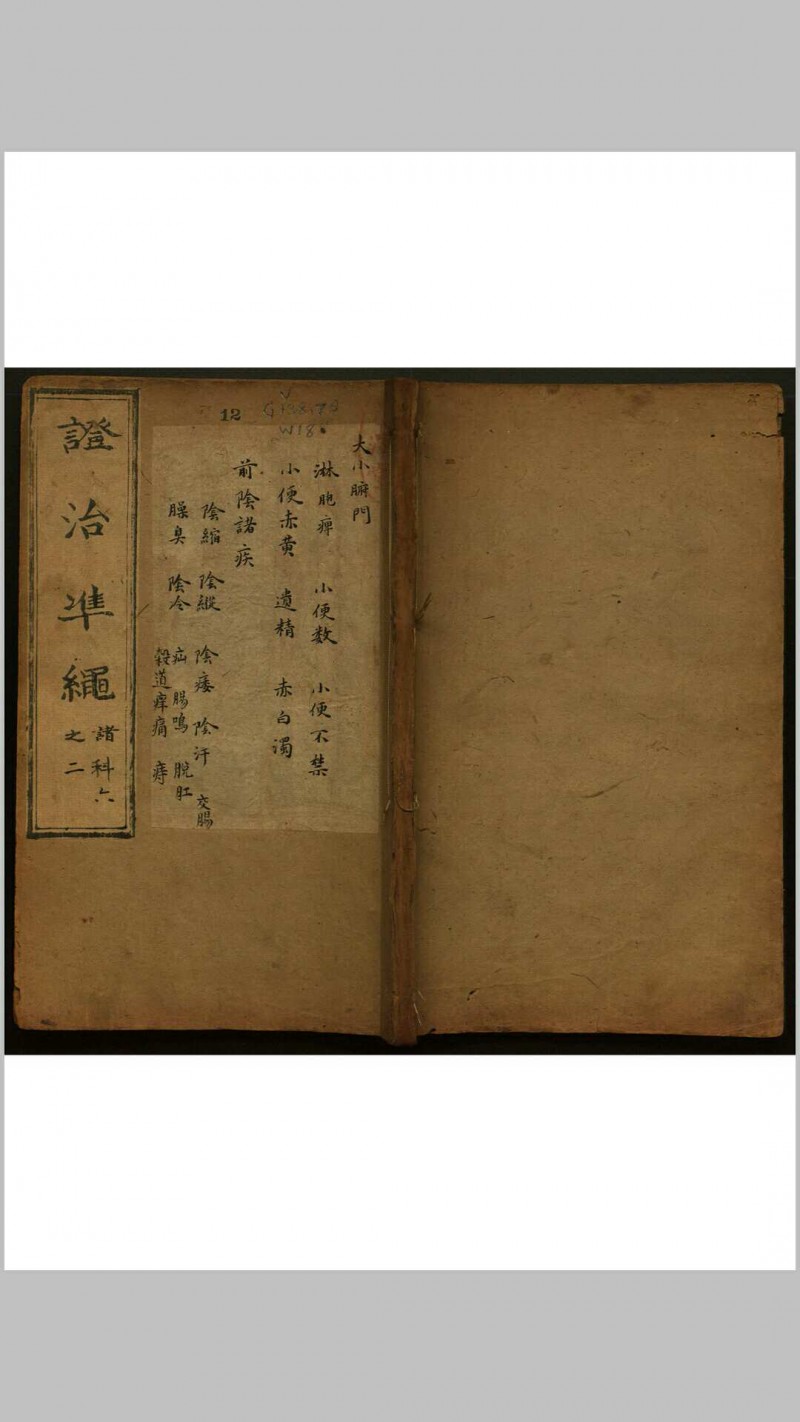 大小腑門
淋 胞痺 小便数 小便不禁
小便赤黃 遺精 赤白濁
前陰諸疾
陰縮 陰縱 陰痿 陰汗 交腸
臊臭 陰冷 疝 腸鳴 脫肛
穀道痒痛 痔
12
W18
證治準繩
諸科六
之二